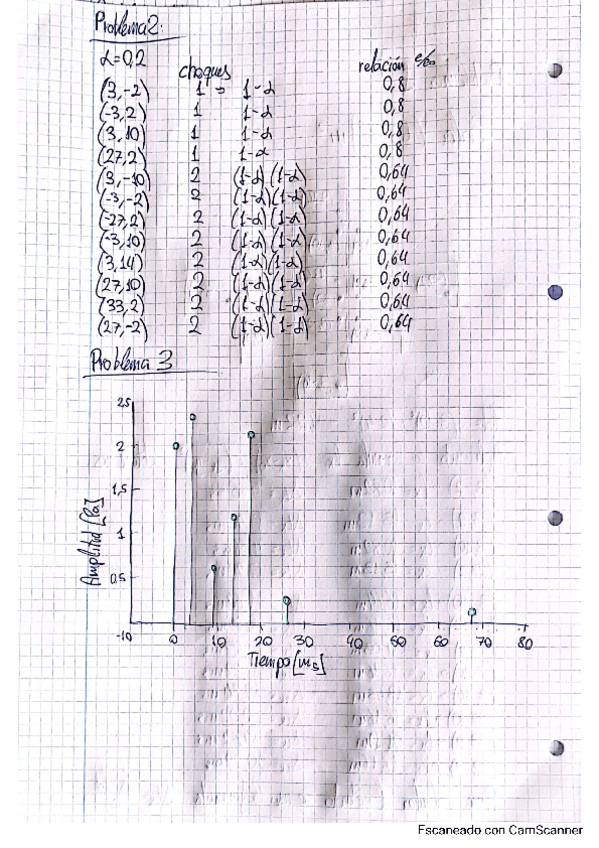 Problema 2:
α=0,2 choques relación e/eo
(3,-2) 1 → 1-α 0,8
(-3,2) 1 1-α 0,8
(3,10) 1 1-α 0,8
(27,2) 1 1-α 0,8
(3,-10) 2 (1-α)(1-α) 0,64
(-3,-2) 2 (1-α)(1-α) 0,64
(-27,2) 2 (1-α)(1-α) 0,64
(-3,10) 2 (1-α)(1-α) 0,64
(3,14) 2 (1-α)(1-α) 0,64
(27,10) 2 (1-α)(1-α) 0,64
(33,2) 2 (1-α)(1-α) 0,64
(27,-2) 2 (1-α)(1-α) 0,64
Problema 3
25
2
1,5
1
0.5
Amplitud [Pa]
-10 0 10 20 30 40 50 60 70 80
Tiempo [ms]
Escaneado con CamScanner